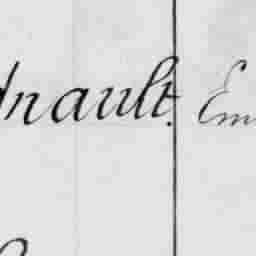 nault. Em